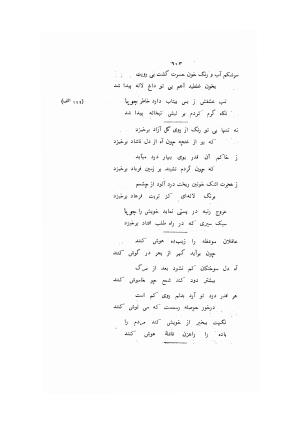 ۶۰۳
سرشکم آب و رنگ خون حسرت گشت بی رویت
بخون غلطید آهم بی تو داغ لاله پیدا شد
تب عشقش ز بس بیتاب دارد خاطر جویا
(۱۱۶ الف)
نگه گرم کردم بر لبش تبخاله پیدا شد
نه تنها بی تو رنگ از روی گل آزاد برخیزد
که بو از غنچه چون آه از دل ناشاد برخیزد
ز خاکم آن قدر بوی بهار درد میآید
که چون گردم نشیند بر زمین فریاد برخیزد
ز حجرت اشک خونین ریخت درد آلود از چشمم
برنگ لاله‌ای کز تربت فرهاد برخیزد
عروج رتبه در پستی نماید خویش را جویا
سبک سیری که در راه طلب افتاد برخیزد
عاقلان موعظه را زیب‌ده هوش کنند
چون برآید گهر از بحر در گوش کنند
آه دل سوختگان کم نشود بعد از مرگ
بیشتر دود کند شمع چو خاموش کنند
هر قدر درد تو آرد بدلم روی کم است
درخور حوصله رسمست که می نوش کنند
نگهت بیخبر از خویش کند مردم را
باده را راهزن قافلهٔ هوش کنند